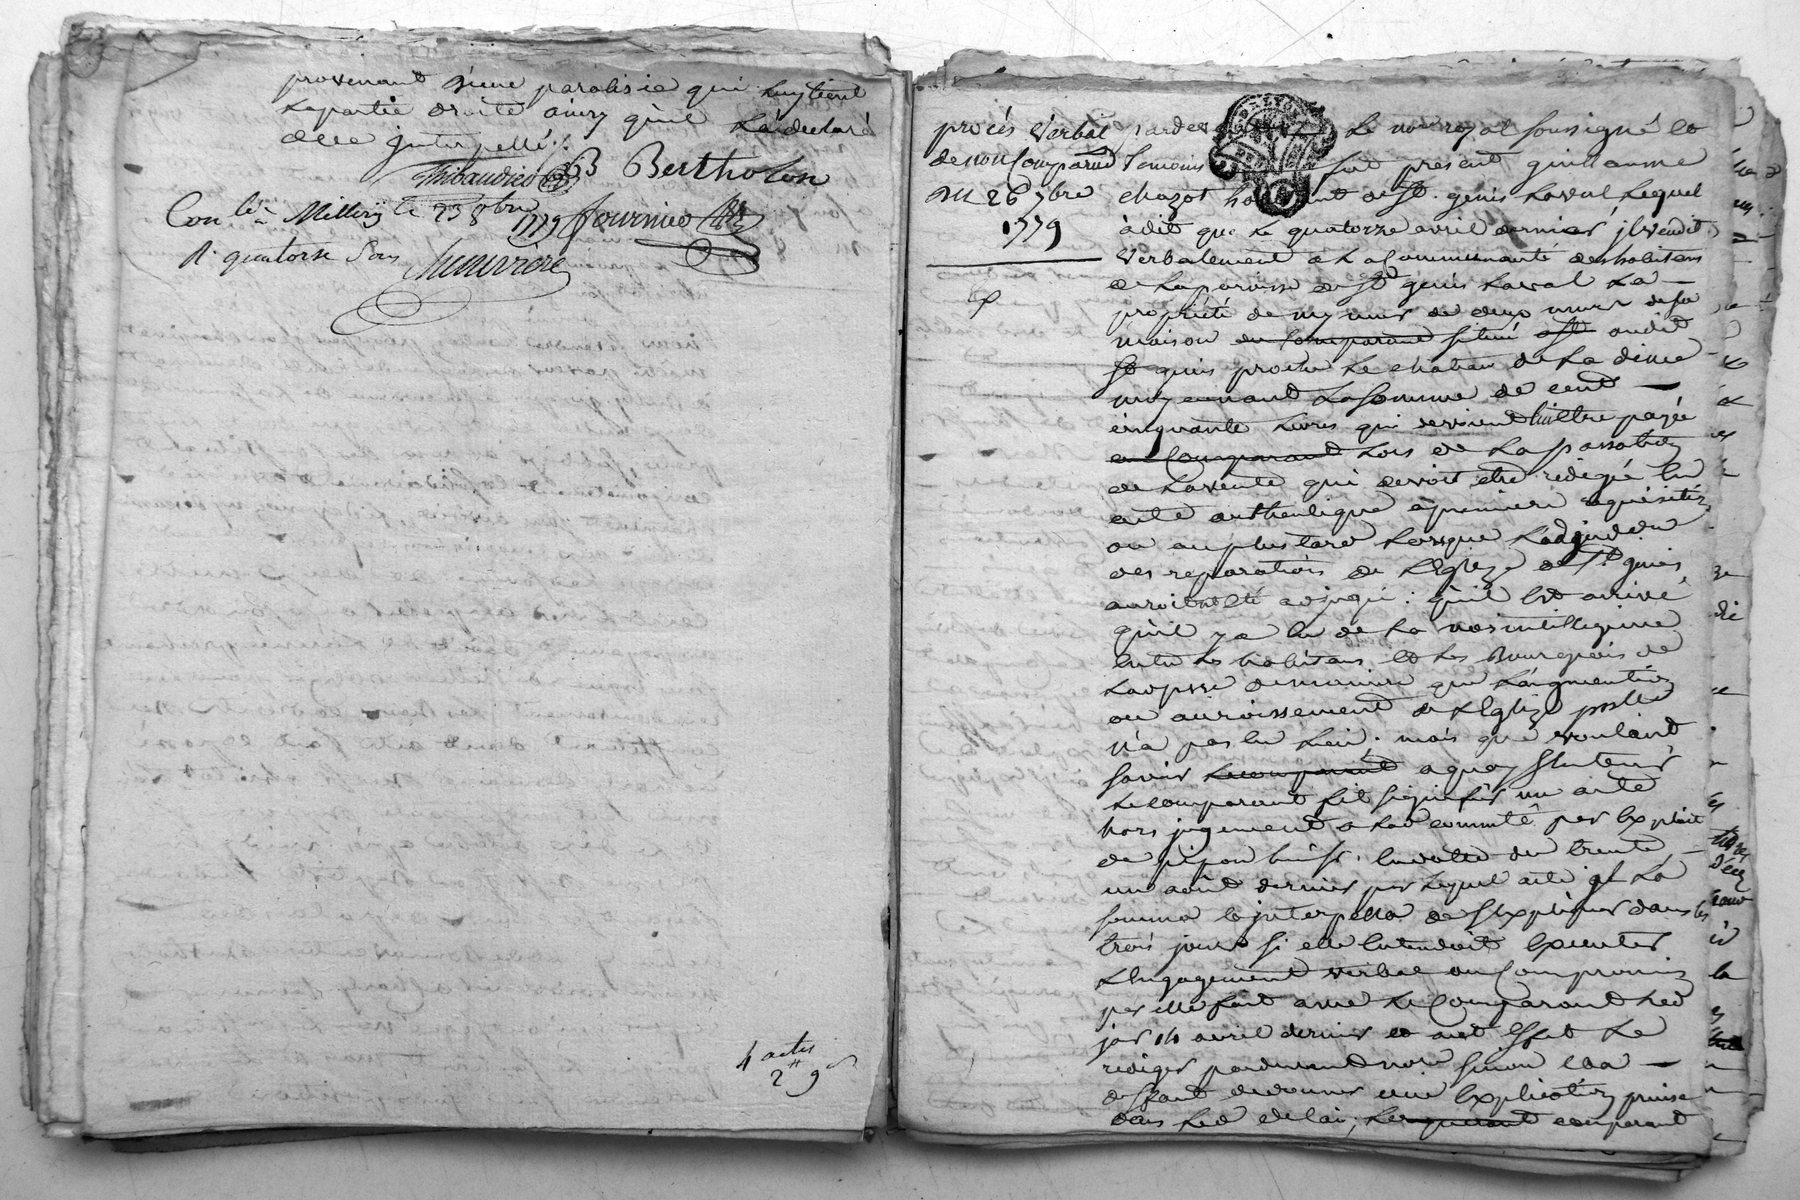 provenant d'une paralisie qui luy tient
la partie droite ainsy qu'il la declaré
de ce interpellé
Thibaudier B Berthelon
Con.lé à Millery le 23 8bre 1779 Fournier
R. quatorze sous
4 actes
2 9
procès verbal
de non Comparant
du 26 7bre
1779
pardevant Le no.re royal soussigné et
temoins fut present guillaume
chazot habitant de St. genis Laval Lequel
à dit que Le quatorze avril dernier jl vendit
verbalement a La Communauté des habitans
de La paroisse de St genis Laval La
propriété de my mur de deux murs de sa
maison du Comparant situé audit
St genis proche Le chateau de La dime
moyennant La somme de cent
cinquante Livres qui devoient lui être payée
au Comparant Lors de La passation
de La vente qui devoit etre redigée en
acte authentique a premiere requisition
ou au plus tard Lorsque L'adjud.on
des reparations de L'Eglize de St. genis
auroient été adjugé : qu'il est arrivé
qu'il y a eu de La mesintelligence
entre Les habitans et Les Bourgeois de
Lad. psse de maniere que L'augmentation
ou accroissement de L'Eglize
n'a pas eu Lieu. mais que voulant
savoir Le comparant a quoy s'en tenir
Le comparant fit signifier un acte
hors jugement a Lad. communté par Exploit
de pipon huiss. en datte du trente
un août dernier par Lequel acte jl La
somma et jnterpella de s'Expliquer dans les
trois jours si elle Entendoit Executer
L'Engagement verbal ou Compromis
par elle fait avec Le Comparant Led
jour 14 avril dernier et a cet effet Le
rediger pardevant no.re sinon et a
deffaut de donner une Explication precise
dans Led delai, Le requerant comparant